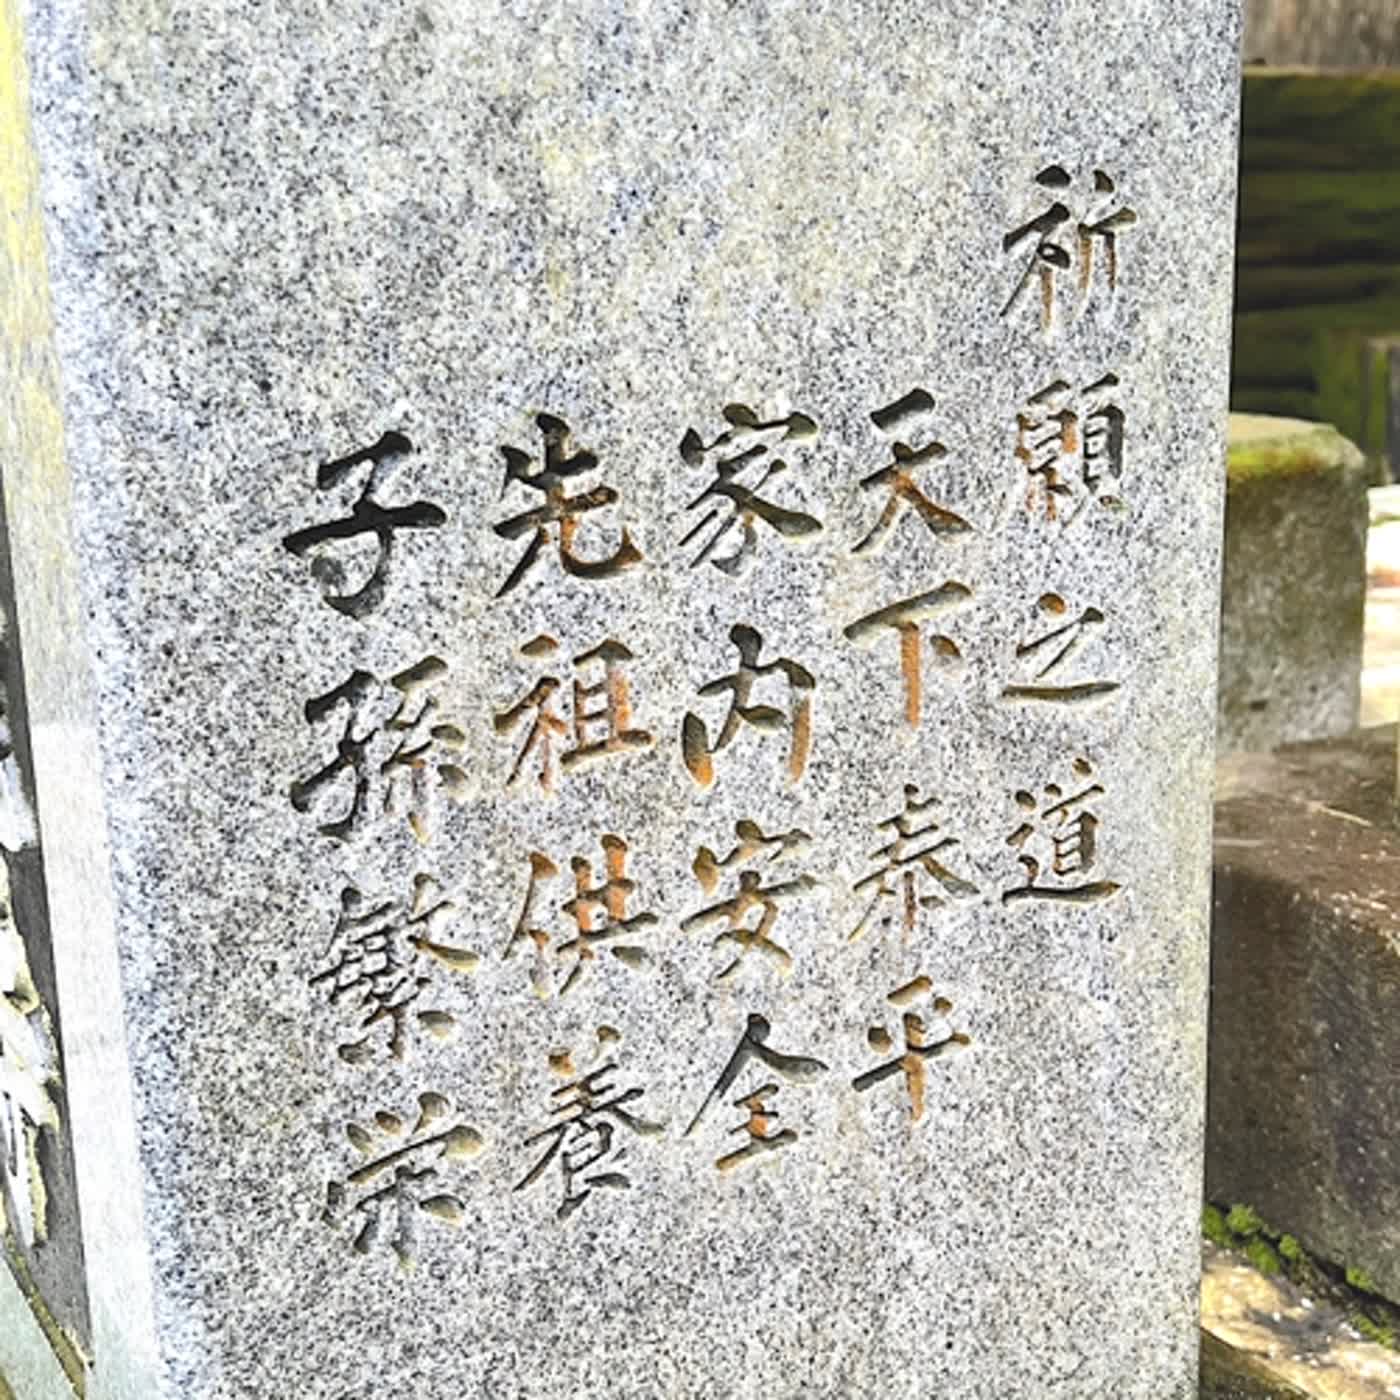 祈願之道
天下泰平
家内安全
先祖供養
子孫繁栄